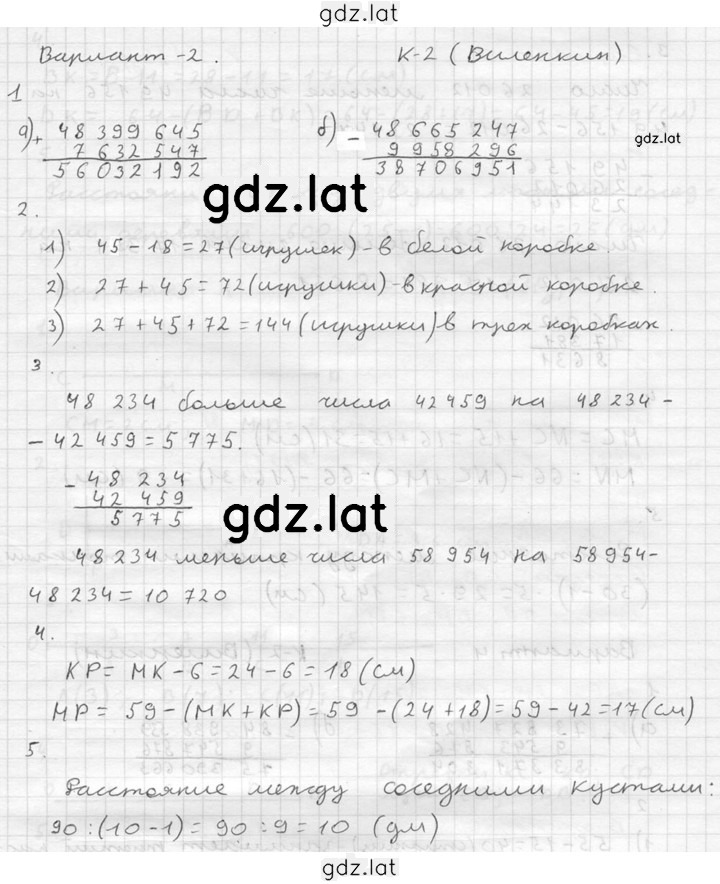 gdz.lat
Вариант -2. К-2 (Виленкин)
1
а) + 48 399 645 б) - 48 665 247
7 632 547 9 958 296
56 032 192 38 706 951
gdz.lat
gdz.lat
2.
1) 45 - 18 = 27 (игрушек) - в белой коробке.
2) 27 + 45 = 72 (игрушки) - в красной коробке.
3) 27 + 45 + 72 = 144 (игрушки) в трех коробках.
3.
48 234 больше числа 42 459 на 48 234 -
- 42 459 = 5 775.
- 48 234
42 459
5 775
gdz.lat
48 234 меньше числа 58 954 на 58 954 -
48 234 = 10 720
4.
КР = МК - 6 = 24 - 6 = 18 (см)
МР = 59 - (МК + КР) = 59 - (24 + 18) = 59 - 42 = 17 (см)
5.
Расстояние между соседними кустами:
90 : (10 - 1) = 90 : 9 = 10 (дм)
gdz.lat